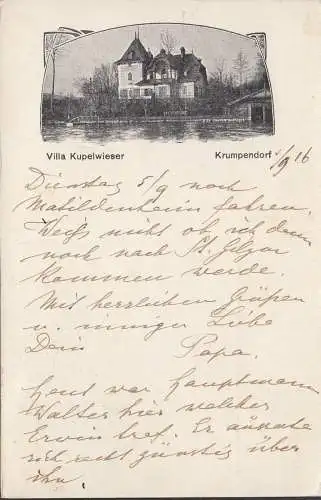 Villa Kupelwieser Krumpendorf 1/9 16
Dienstag 5/9 nach
Mathildenheim fahren.
Weiß nicht ob ich dann
noch nach St. Gilgen
kommen werde.
Mit herzlichen Grüßen
u. inniger Liebe
Dein Papa.
Heut war Hauptmann
Walter hier welcher
Erwin traf. Er äußerte
sich recht günstig über
ihn.